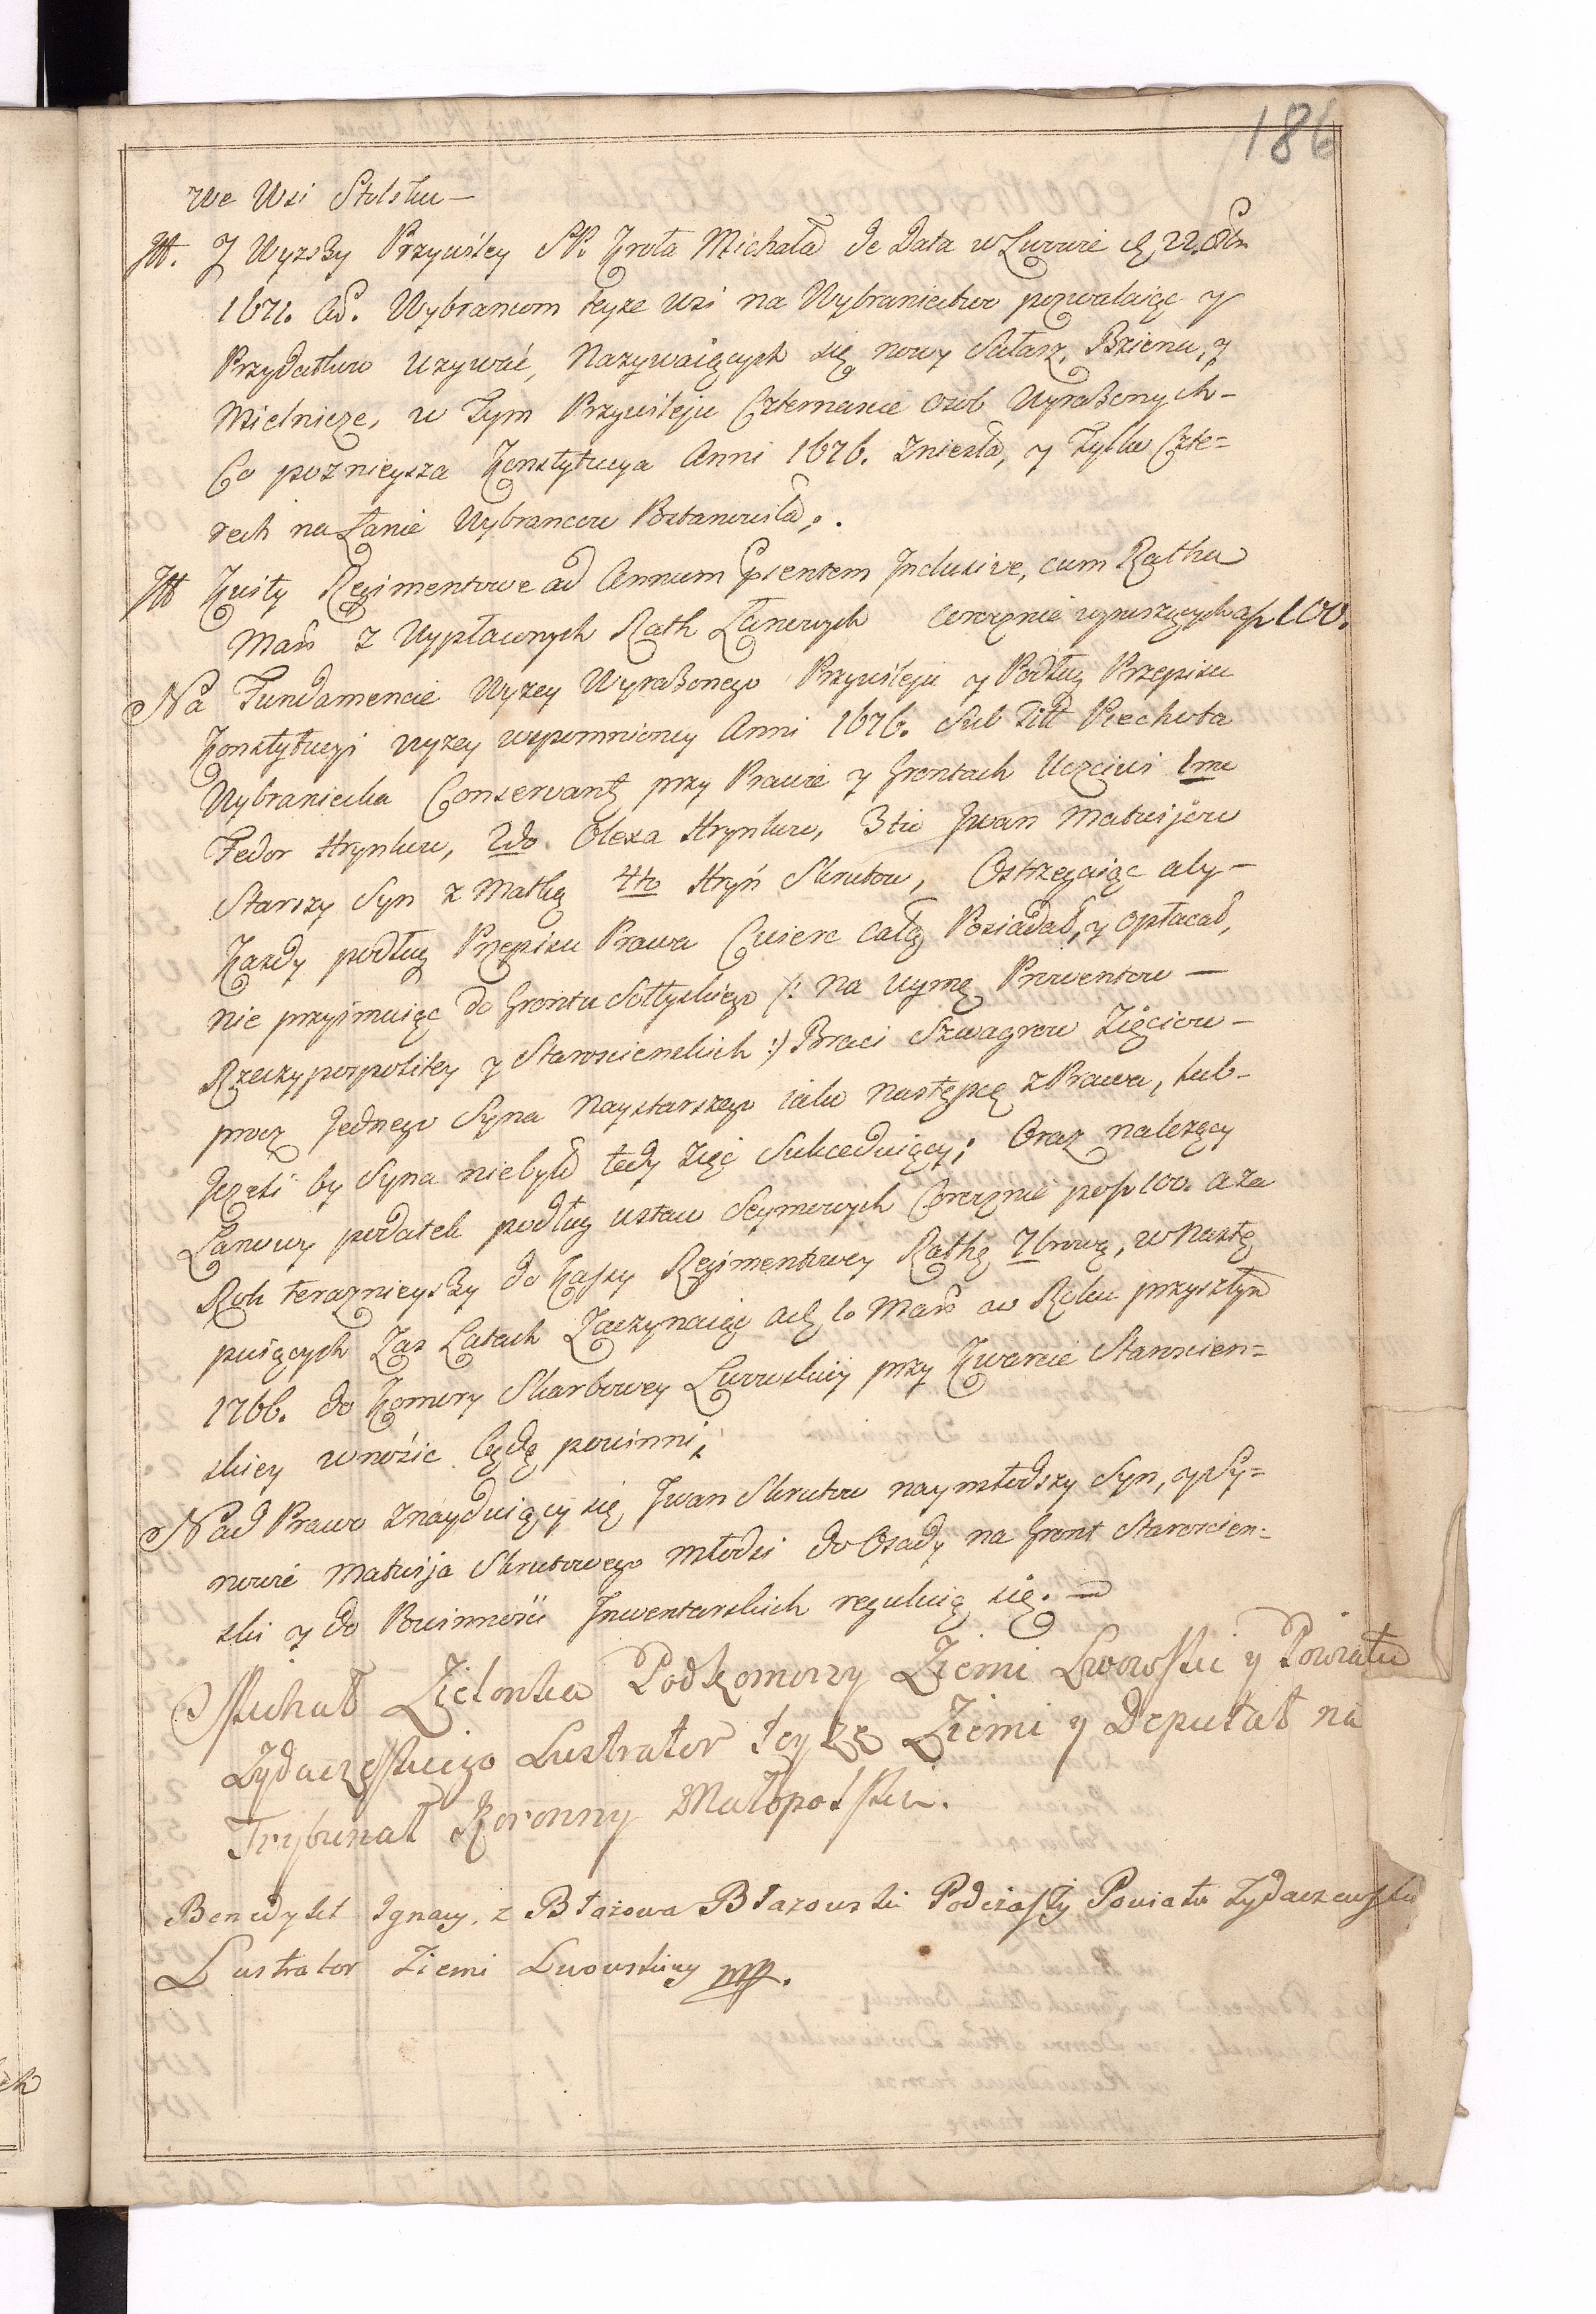 186
we Wsi Stulsku—
It. J Wyższy Przywiley SP. Krola Michała de Data w Lwowie d. 22. 8br.
1671. ad. Wybrancom teyze wsi na Wybraniectwo pozwalaiąc y
Przydatkow używać, nazywaiących się nowy Sałasz, Bzienu, y
Mielnicze, w Tym Przywileju Czternaście osob Wyrażonych—
Co poznieysza Konstytucya Anni 1676. Zniesła, y Tylko Czte=
rech na Łanie Wybrancow Postanowiła;.
It Kwity Regimentowe ad Annum psentem Inclusive, cum Ratha
Mar. z Wypłaconych Rath Łanowych corocznie wynoszących a f 100.
Na Fundamencie Wyzey Wyrażonego Przywileju y Podług Przepisu
Konstytucyi wyzey wspomnioney Anni 1676. Sub Titt Piechota
Wybraniecka Conservantr przy Prawie y Gruntach Uczciwi 1mo
Fedor Hrynkow, 2do. Olexa Hrynkow, 3tio Jwan Matwijow
Starszy Syn z Matką 4to Hryń Skrutow, Ostrzegaiąc aby—
Kazdy podług Przepisu Prawa Cwierć całą Posiadał, y opłacał,
nie przyimuiąc do Gruntu Sołtyskiego /: na uymę Prowentow—
Rzeczypospolitey y Starościenskich :/ Braci Szwagrow Zięciow—
procz Jednego Syna naystarszego iako następcę z Prawa, lub—
Jezeli by Syna niebyło tedy Zięć Sukceduiący; Oraz nalezący
Łanowy podatek podług ustaw Seymowych Corocznie po f 100. a za
Rok teraznieyszy do Kassy Regimentowey Rathę 7brową, w nastę
puiących Zaś Latach Zaczynaiąc od 1o Mar. w Roku przyszłym
1766. do Komory Skarbowey Lwowskiey przy Kwarcie Starościen=
skiey wnosic będą powinni,
Nad Prawo znayduiący się Jwan Skrutow naymłodszy Syn, y Sy=
nowie Matwija Skrutowego młodsi do Osady na Grunt Starościen=
ski y do Powinności Jnwentarskich reguluią się.—
Michał Zielonka Podkomorzy Ziemi Lwowski y Powiatu
Zydaczeskiego Lustrator teyze Ziemi y Deputat na
Trybunał Koronny Małopolski.
Benedykt Ignacy. z Błazowa Błazowski Podczaszy Powiatu Zydaczewski
Lustrator Ziemi Lwowskiey mp.